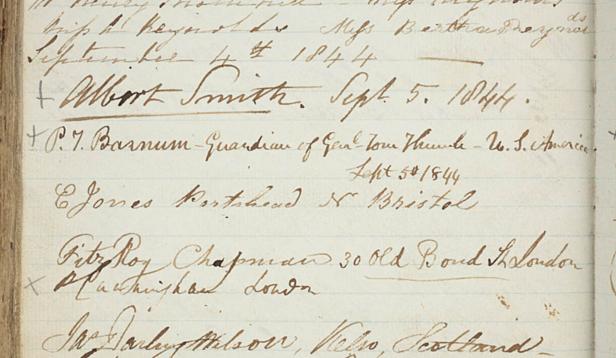 Miss Reynolds Miss Bertha Reynolds
September 4th 1844
+ Albert Smith. Sept. 5. 1844.
+ P. T. Barnum - Guardian of Genl Tom Thumb - U. S. America.
Sept 5th 1844
E Jones Portshead Nr Bristol
FitzRoy Chapman 30 Old Bond St London
x P. Cunningham London
Jas Darling Wilson, Kelso, Scotland